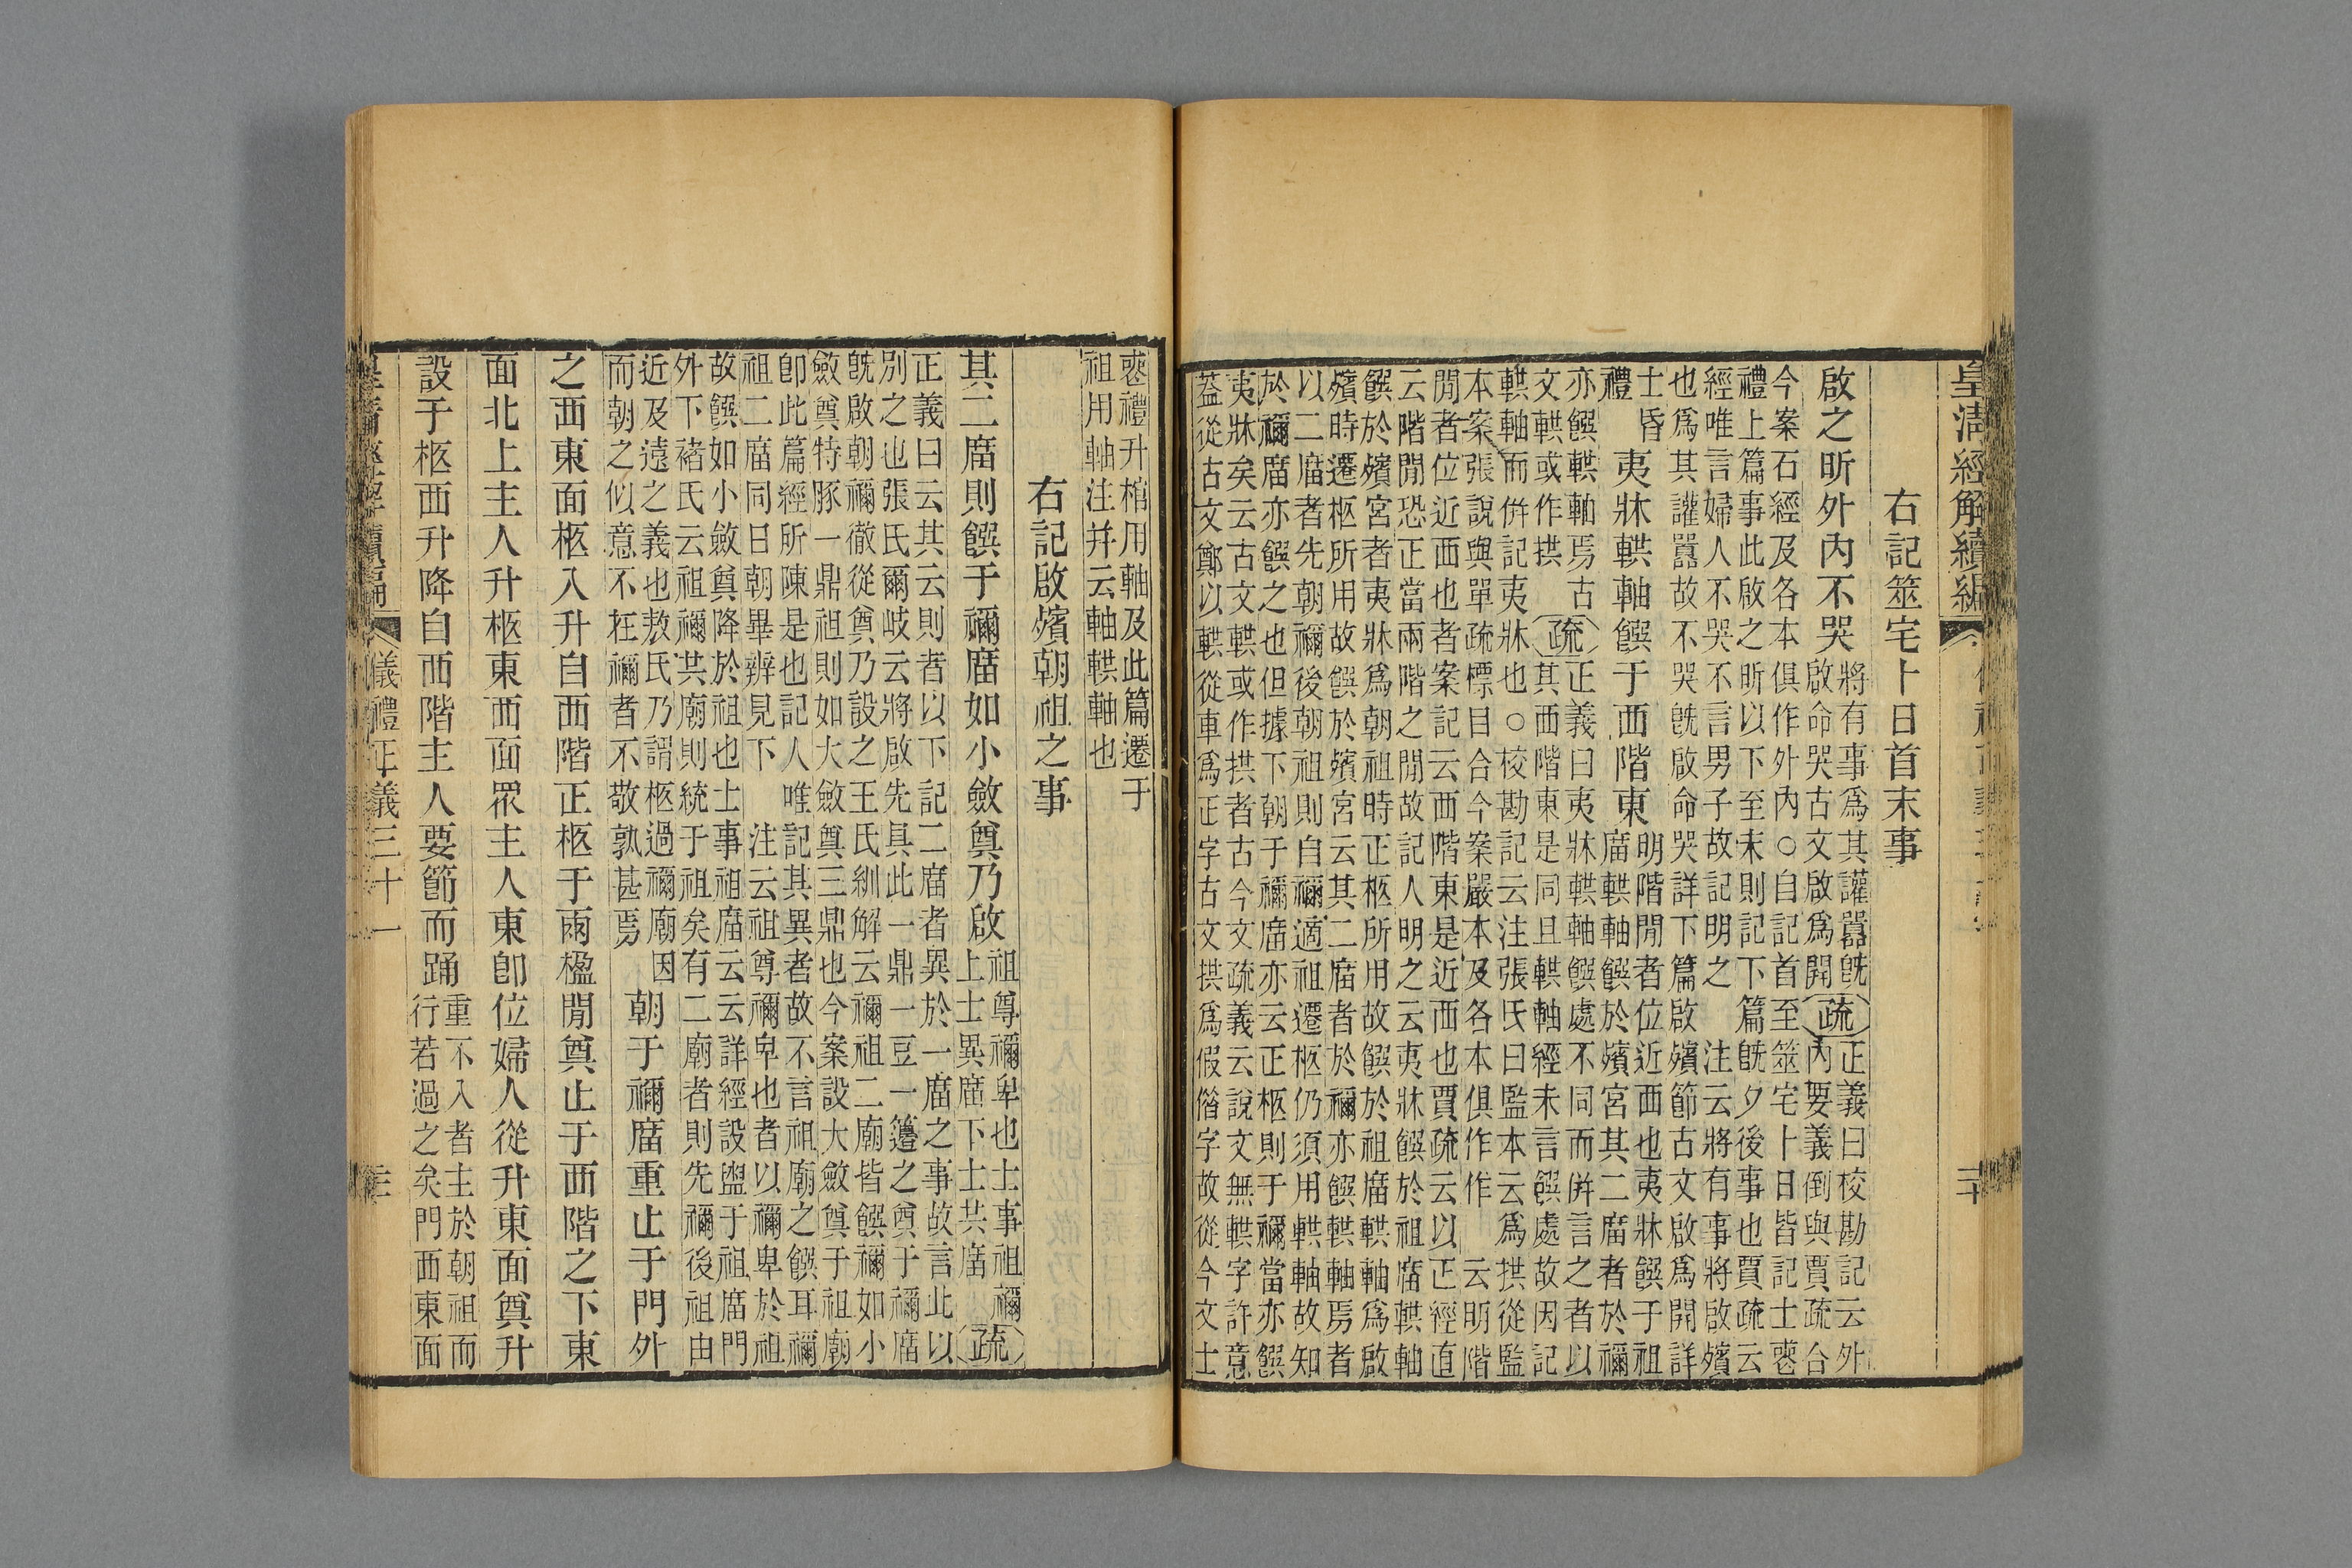 皇清經解續編
二十
右記筮宅卜日首末事
啟之昕外內不哭
將有事爲其讙囂旣
啟命哭古文啟爲開
疏
正義曰校勘記云外
內要義倒與賈疏合
今案石經及各本俱作外內○自記首至筮宅卜日皆記士喪
禮上篇事此啟之昕以下至末則記下篇旣夕後事也賈疏云
經唯言婦人不哭不言男子故記明之　注云將有事將啟殯
也爲其讙囂故不哭旣啟命哭詳下篇啟殯節古文啟爲開詳
士昏
禮
夷牀輁軸饌于西階東
明階閒者位近西也夷牀饌于祖
廟輁軸饌於殯宮其二廟者於禰
亦饌輁軸焉古
文輁或作拱
疏
正義曰夷牀輁軸饌處不同而併言之者以
其西階東是同且輁軸經未言饌處故因記
輁軸而併記夷牀也○校勘記云注張氏曰監本云爲拱從監
本案張說與單疏標目合今案嚴本及各本俱作作　云明階
閒者位近西也者案記云西階東是近西也賈疏云以正經直
云階閒恐正當兩階之閒故記人明之云夷牀饌於祖廟輁軸
饌於殯宮者夷牀爲朝祖時正柩所用故饌於祖廟輁軸爲啟
殯時遷柩所用故饌於殯宮云其二廟者於禰亦饌輁軸焉者
以二廟者先朝禰後朝祖則自禰適祖遷柩仍須用輁軸故知
於禰廟亦饌之也但據下朝于禰廟亦云正柩則于禰當亦饌
夷牀矣云古文輁或作拱者古今文疏義云說文無輁字許意
葢從古文鄭以輁從車爲正字古文拱爲假借字故從今文士
喪禮升棺用軸及此篇遷于
祖用軸注并云軸輁軸也
右記啟殯朝祖之事
其二廟則饌于禰廟如小斂奠乃啟
祖尊禰卑也士事祖禰
上士異廟下士共廟
疏
正義曰云其云則者以下記二廟者異於一廟之事故言此以
別之也張氏爾岐云將啟先具此一鼎一豆一籩之奠于禰廟
旣啟朝禰徹從奠乃設之王氏紃解云禰祖二廟皆饌禰如小
斂奠特豚一鼎祖則如大斂奠三鼎也今案設大斂奠于祖廟
卽此篇經所陳是也記人唯記其異者故不言祖廟之饌耳禰
祖二廟同日朝畢辨見下　注云祖尊禰卑也者以禰卑於祖
故饌如小斂奠降於祖也士事祖廟云云詳經設盥于祖廟門
外下褚氏云祖禰共廟則統于祖矣有二廟者則先禰後祖由
近及遠之義也敖氏乃謂柩過禰廟因
而朝之似意不在禰者不敬孰甚焉
朝于禰廟重止于門外
之西東面柩入升自西階正柩于兩楹閒奠止于西階之下東
面北上主人升柩東西面眾主人東卽位婦人從升東面奠升
設于柩西升降自西階主人要節而踊
重不入者主於朝祖而
行若過之矣門西東面
儀禮正義三十一